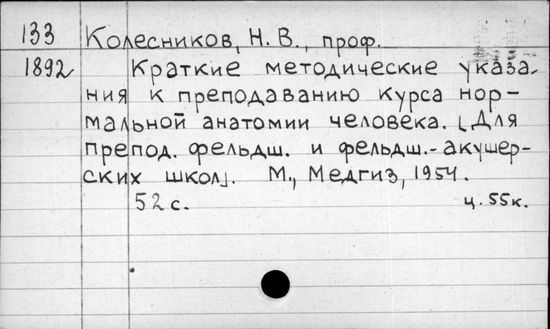 133 Колесников, Н. В., проф.
1892 Краткие методические указа-
ния к преподаванию курса нор-
мальной анатомии человека. [Для
препод. фельдш. и фельдш.-акушер-
ских школ]. М., Медгиз, 1954.
52 с. ц. 55к.